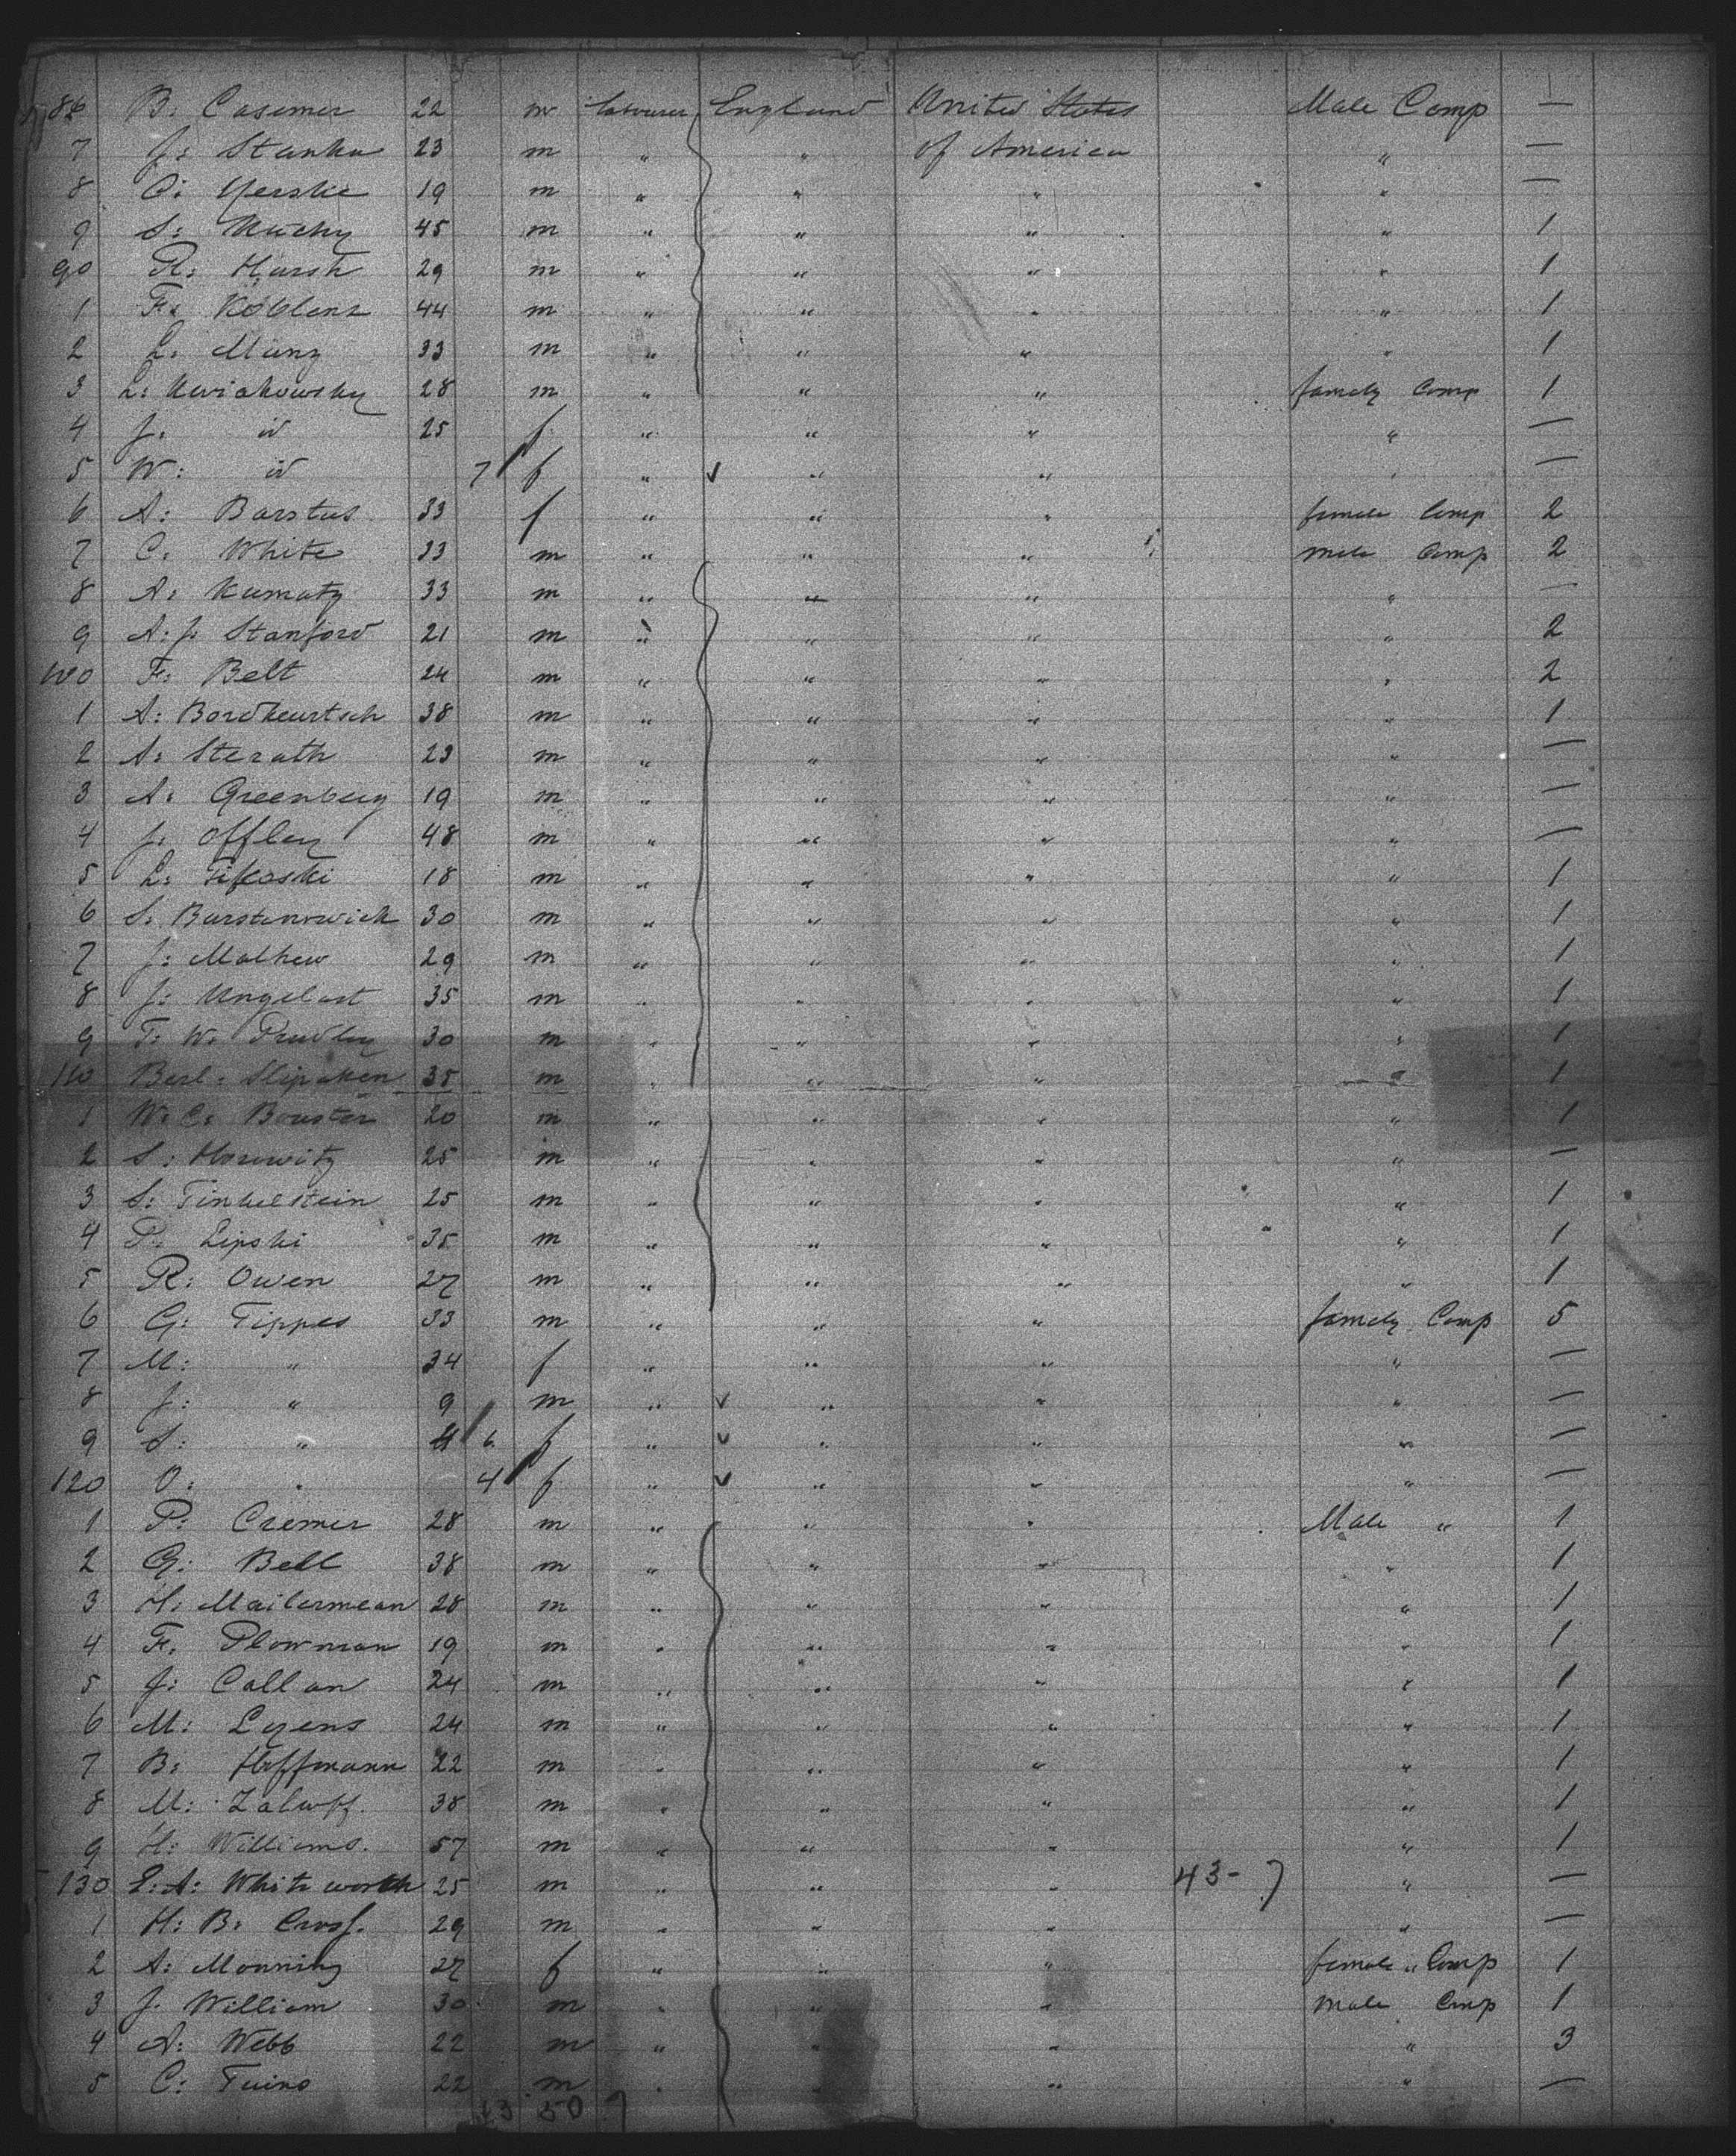 86 B: Casemer 22 m labourer England United States Male Comp —
7 J: Stanka 23 m " " of America " —
8 C: Yerskie 19 m " " " " —
9 S: Kuchy 45 m " " " " 1
90 R: Hursh 29 m " " " " 1
1 F: Koblenz 44 m " " " " 1
2 L: Munz 33 m " " " " 1
3 L: Kwiakowsky 28 m " " " famely Comp 1
4 J: id 25 f " " " " —
5 W: id 7 f " " " " —
6 A: Barstus 33 f " " " female Comp 2
7 C: White 33 m " " " male Comp 2
8 A: Kumatz 33 m " " " " —
9 A: J. Stanford 21 m " " " " 2
100 F: Belt 24 m " " " " 2
1 A: Bordkeurtsch 38 m " " " " 1
2 A: Sterath 23 m " " " " —
3 A: Greenberg 19 m " " " " —
4 J: Offley 48 m " " " " —
5 L: 18 m " " " " 1
6 S: Burstenowich 30 m " " " " 1
7 J: Mathew 29 m " " " " 1
8 J: Ungelart 35 m " " " " 1
9 T: W: 30 m " " " " 1
110 Berl: Slipaken 35 m " " " " 1
1 W: C: Bouster 20 m " " " " 1
2 S: Horowitz 25 m " " " " —
3 S: Finkelstein 25 m " " " " 1
4 P. Lipski 35 m " " " " 1
5 R: Owen 27 m " " " " 1
6 G: Tippes 33 m " " " famely Comp 5
7 M: " 34 f " " " " —
8 J: " 9 m " " " " —
9 S: " 6 f " " " " —
120 O: " 4 f " " " " —
1 P: Cremer 28 m " " " Male " 1
2 G: Bell 38 m " " " " 1
3 H: Mailermean 28 m " " " " 1
4 F. Plowman 19 m " " " " 1
5 J: Callan 24 m " " " " 1
6 M: Lyens 24 m " " " " 1
7 B: Hoffmann 22 m " " " " 1
8 M: 38 m " " " " 1
9 H: Williams. 57 m " " " " 1
130 E: A: Whitworth 25 m " " " 43-7 " —
1 H: B: Cross. 29 m " " " " —
2 A: Monning 27 f " " " female " Comp 1
3 J. William 30 m " " " male Comp 1
4 A: Webb 22 m " " " " 3
5 C: 22 m " " " " —
43 50 7